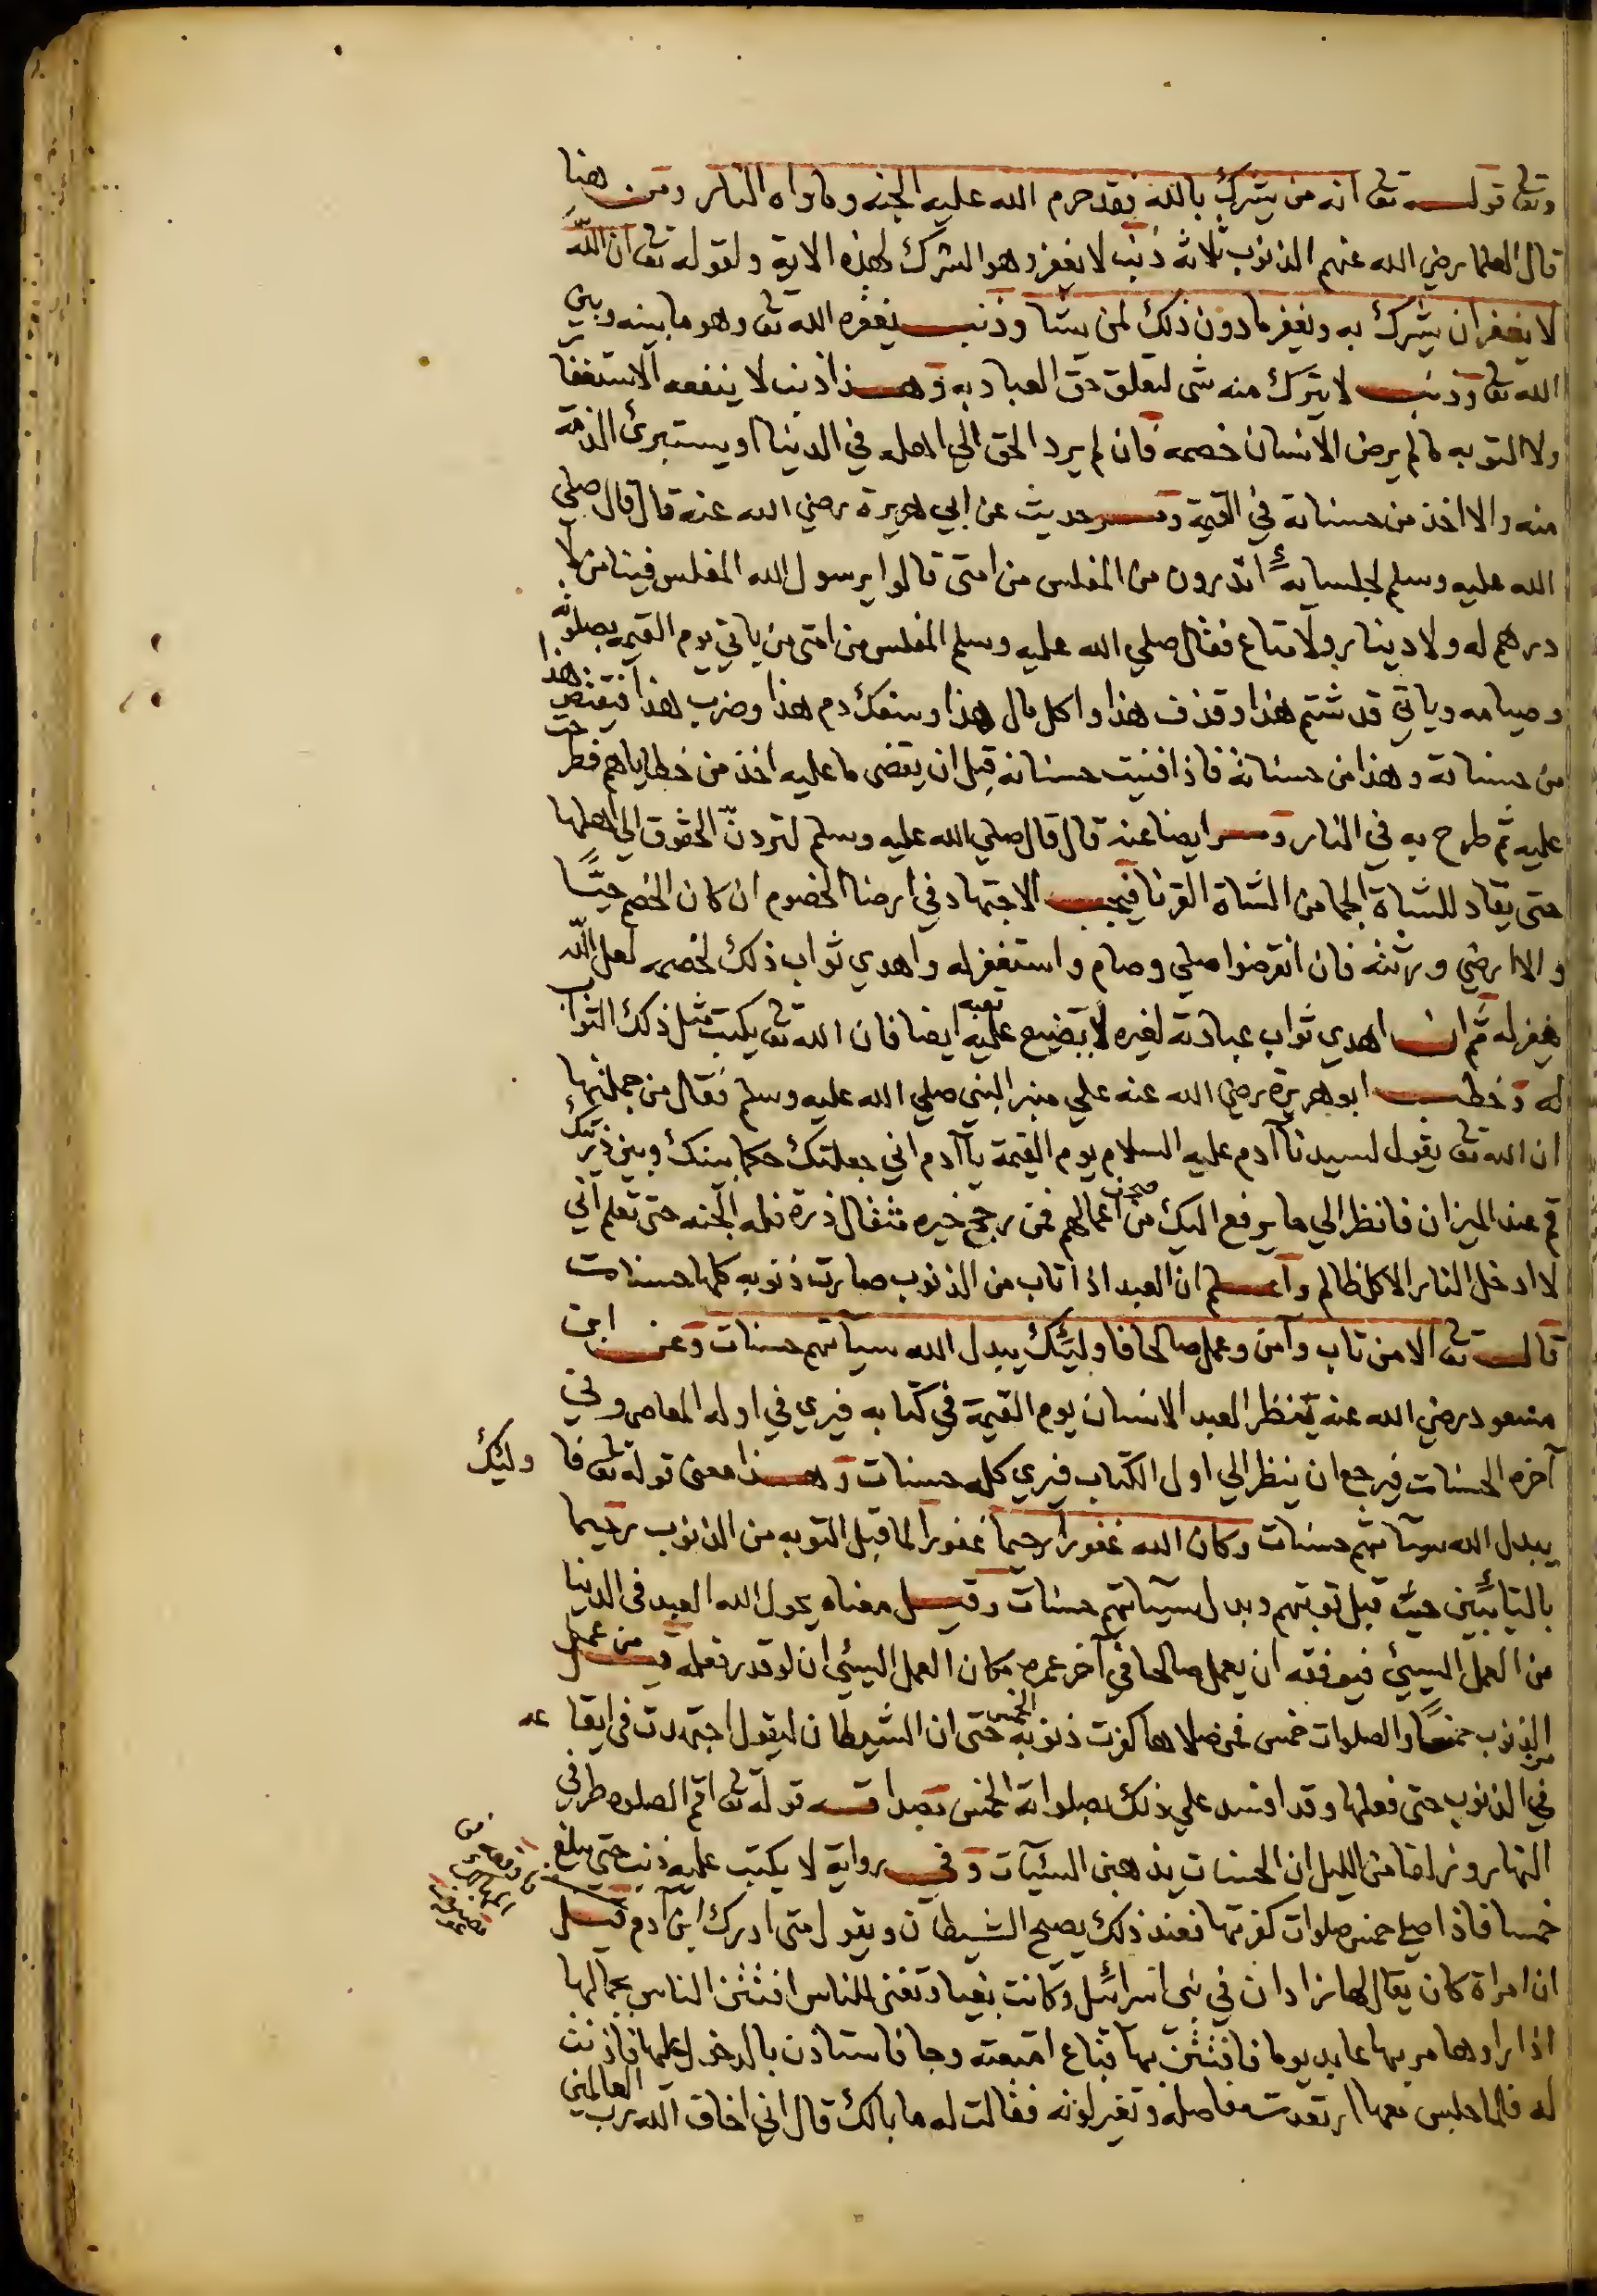 وتعالى قوله تع انه من يشرك بالله فقد حرم الله عليه الجنه وماواه النار ومن هنا
قال العلما رضي الله عنهم الذنوب ثلاثه ذنب لا يغفر وهو الشرك لهذه الاية ولقوله تع ان الله
لا يغفر ان يشرك به ويغفر ما دون ذلك لمن يشا وذنب يغفره الله تع وهو ما بينه وبين
الله تع وذنب لا يترك منه شى لتعلق حق العباد به وهذا ذنب لا ينفعه الاستغفا
ولا التوبه ما لم يرض الانسان خصمه فان لم يرد الحق الي اهله في الدنيا او يستبرئ الذمة
منه والا اخذ من حسناته في القيمة وفى حديث عن ابي هريرة رضي الله عنه قال قال صلي
الله عليه وسلم لجلسائه اتدرون من المفلس من امتى قالوا يرسول الله المفلس فينا من لا
درهم له ولا دينار ولا متاع فقال صلي الله عليه وسلم المفلس من امتى من ياتي يوم القيمه بصلوته
وصيامه وياتي قد شتم هذا وقذف هذا واكل مال هذا وسفك دم هذا وضرب هذا فيقتص هذا
من حسناته وهذا من حسناته فاذا فنيت حسناته قبل ان يقضى ما عليه اخذ من خطاياهم فطرحت
عليه ثم طرح به في النار وفى ايضا عنه قال قال صلي الله عليه وسلم لتردنّ الحقوق الي اهلها
حتى يقاد للشاة الجما من الشاة القرنا فيجب الاجتهاد في ارضا الخصوم ان كان الخصم حيًّا
والا ارضي ورثته فان انقرضوا صلي وصام واستغفر له واهدي ثواب ذلك لخصمه لعل الله
يغفر له ثم ان اهدي ثواب عبادته لغيره لا يضيع عليه تعبه ايضا فان الله تع يكتب مثل ذلك الثواب
له وخطب ابو هريرة رضي الله عنه علي منبر النبي صلي الله عليه وسلم فقال من جملتها
ان الله تع يقول لسيدنا آدم عليه السلام يوم القيمة يا آدم اني جعلتك حكما بينك وبين ذريتك
قم عند الميزان فانظر الي ما يرفع اليك من صحف اعمالهم فمن رجح خيره مثقال ذرة فله الجنه حتى تعلم اني
لا ادخل النار الا كل ظالم واعلم ان العبد اذا تاب من الذنوب صارت ذنوبه كلها حسنات
قال تع الا من تاب وآمن وعمل صالحا فاوليك يبدل الله سيآتهم حسنات وعن ابن
مسعود رضي الله عنه ينظر العبد الانسان يوم القيمة في كتابه فيري في اوله المعاصى وفي
آخره الحسنات فيرجع ان ينظر الي اول الكتاب فيري كله حسنات وهذا معنى قوله تع فا وليك
يبدل الله سيآتهم حسنات وكان الله غفورا رحيما غفورا لما قبل التوبه من الذنوب رحيما
بالتائبين حيث قبل توبتهم وبدل سيآتهم حسنات وقيل معناه يحول الله العبد فى الدنيا
من العمل السيئ فيوفقه ان يعمل صالحا في آخر عمره مكان العمل السيئ ان لو قدر فعله فمن عمل
من الذنوب خمسًا والصلوات خمس فمن صلاها كفرت ذنوبه الخمس حتى ان الشيطان ليقول اجتهدت فى ايقا عه
في الذنوب حتى فعلها وقد افسد علي ذلك بصلواته الخمس مصداقه قوله تع اقم الصلوه طرفي
النهار وزلفا من الليل ان الحسنات يذهبن السيئات وفي رواية لا يكتب عليه ذنب حتى يبلغ
خمسا فاذا صلي خمس صلوات كفرتها فعند ذلك يصيح الشيطان ويقول متى ادرك ابن آدم قيل
ان امراة كان يقال لها زادان في بنى اسرائيل وكانت بغيا وتغنى للناس افتتن الناس بجمالها
اذا راوها مر بها عابد يوما فافتتن بها فباع امتعته وجا فاستاذن بالدخول عليها فاذنت
له فلما جلس معها ارتعدت مفاصله وتغير لونه فقالت له ما بالك قال اني اخاف الله رب العالمين